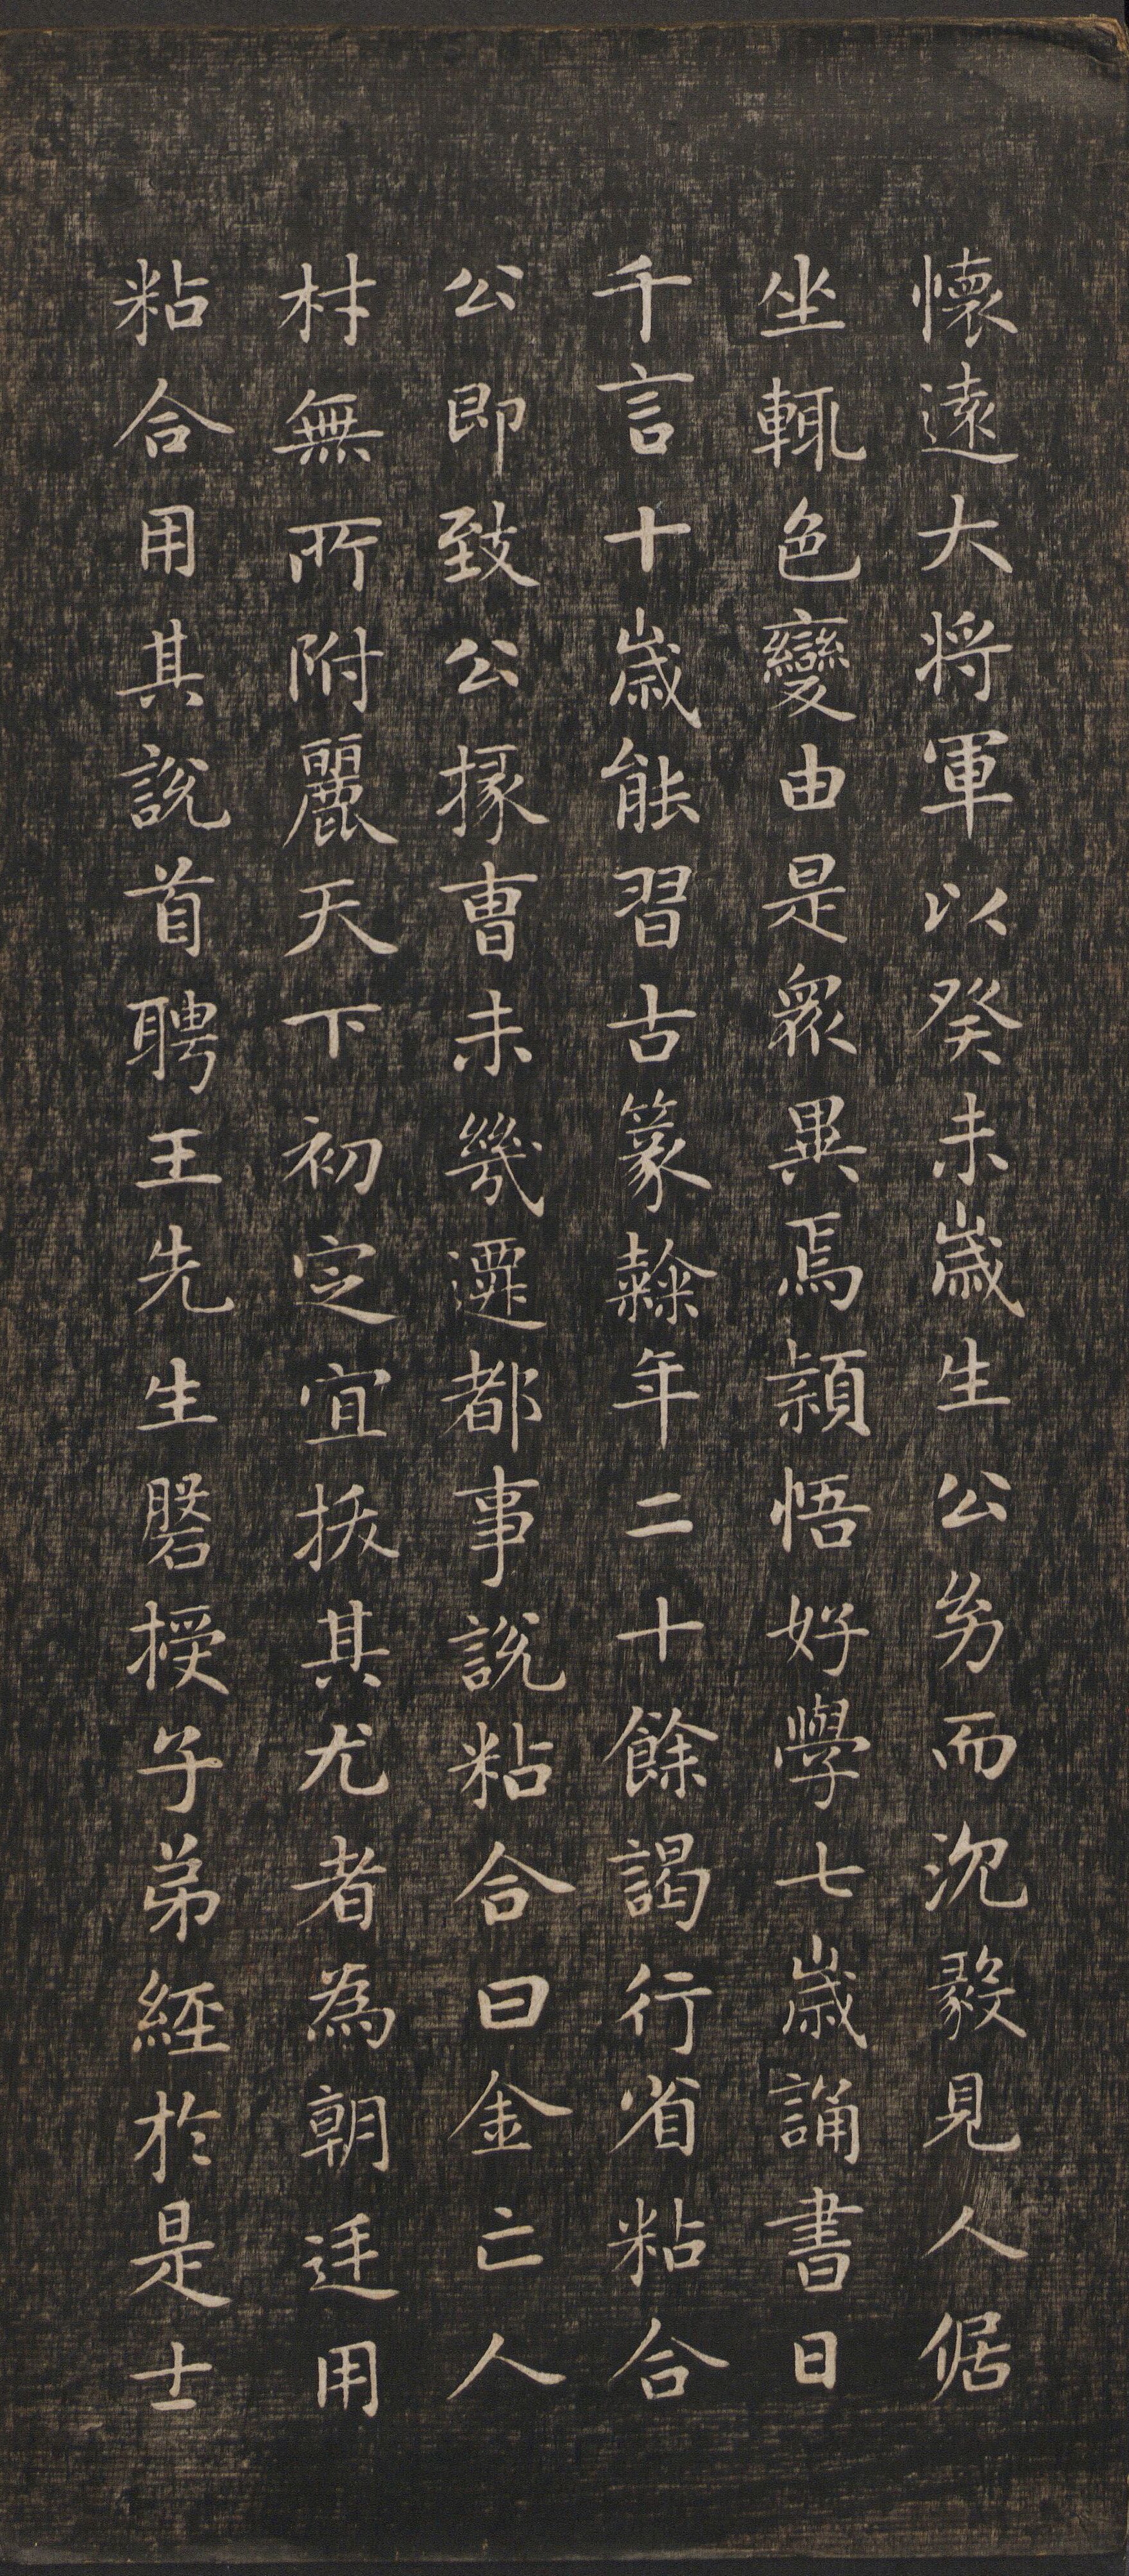 懷遠大將軍以癸未歲生公㓜而沉毅見人倨
坐輒色變由是衆異焉穎悟好學七歲誦書日
千言十歲能習古篆繇年二十餘謁行省粘合
公即致公掾曺未幾遷都事說粘合曰金亡人
材無所附麗天下初定宜拔其尤者為朝廷用
粘合用其說首聘王先生磐授子弟經於是士